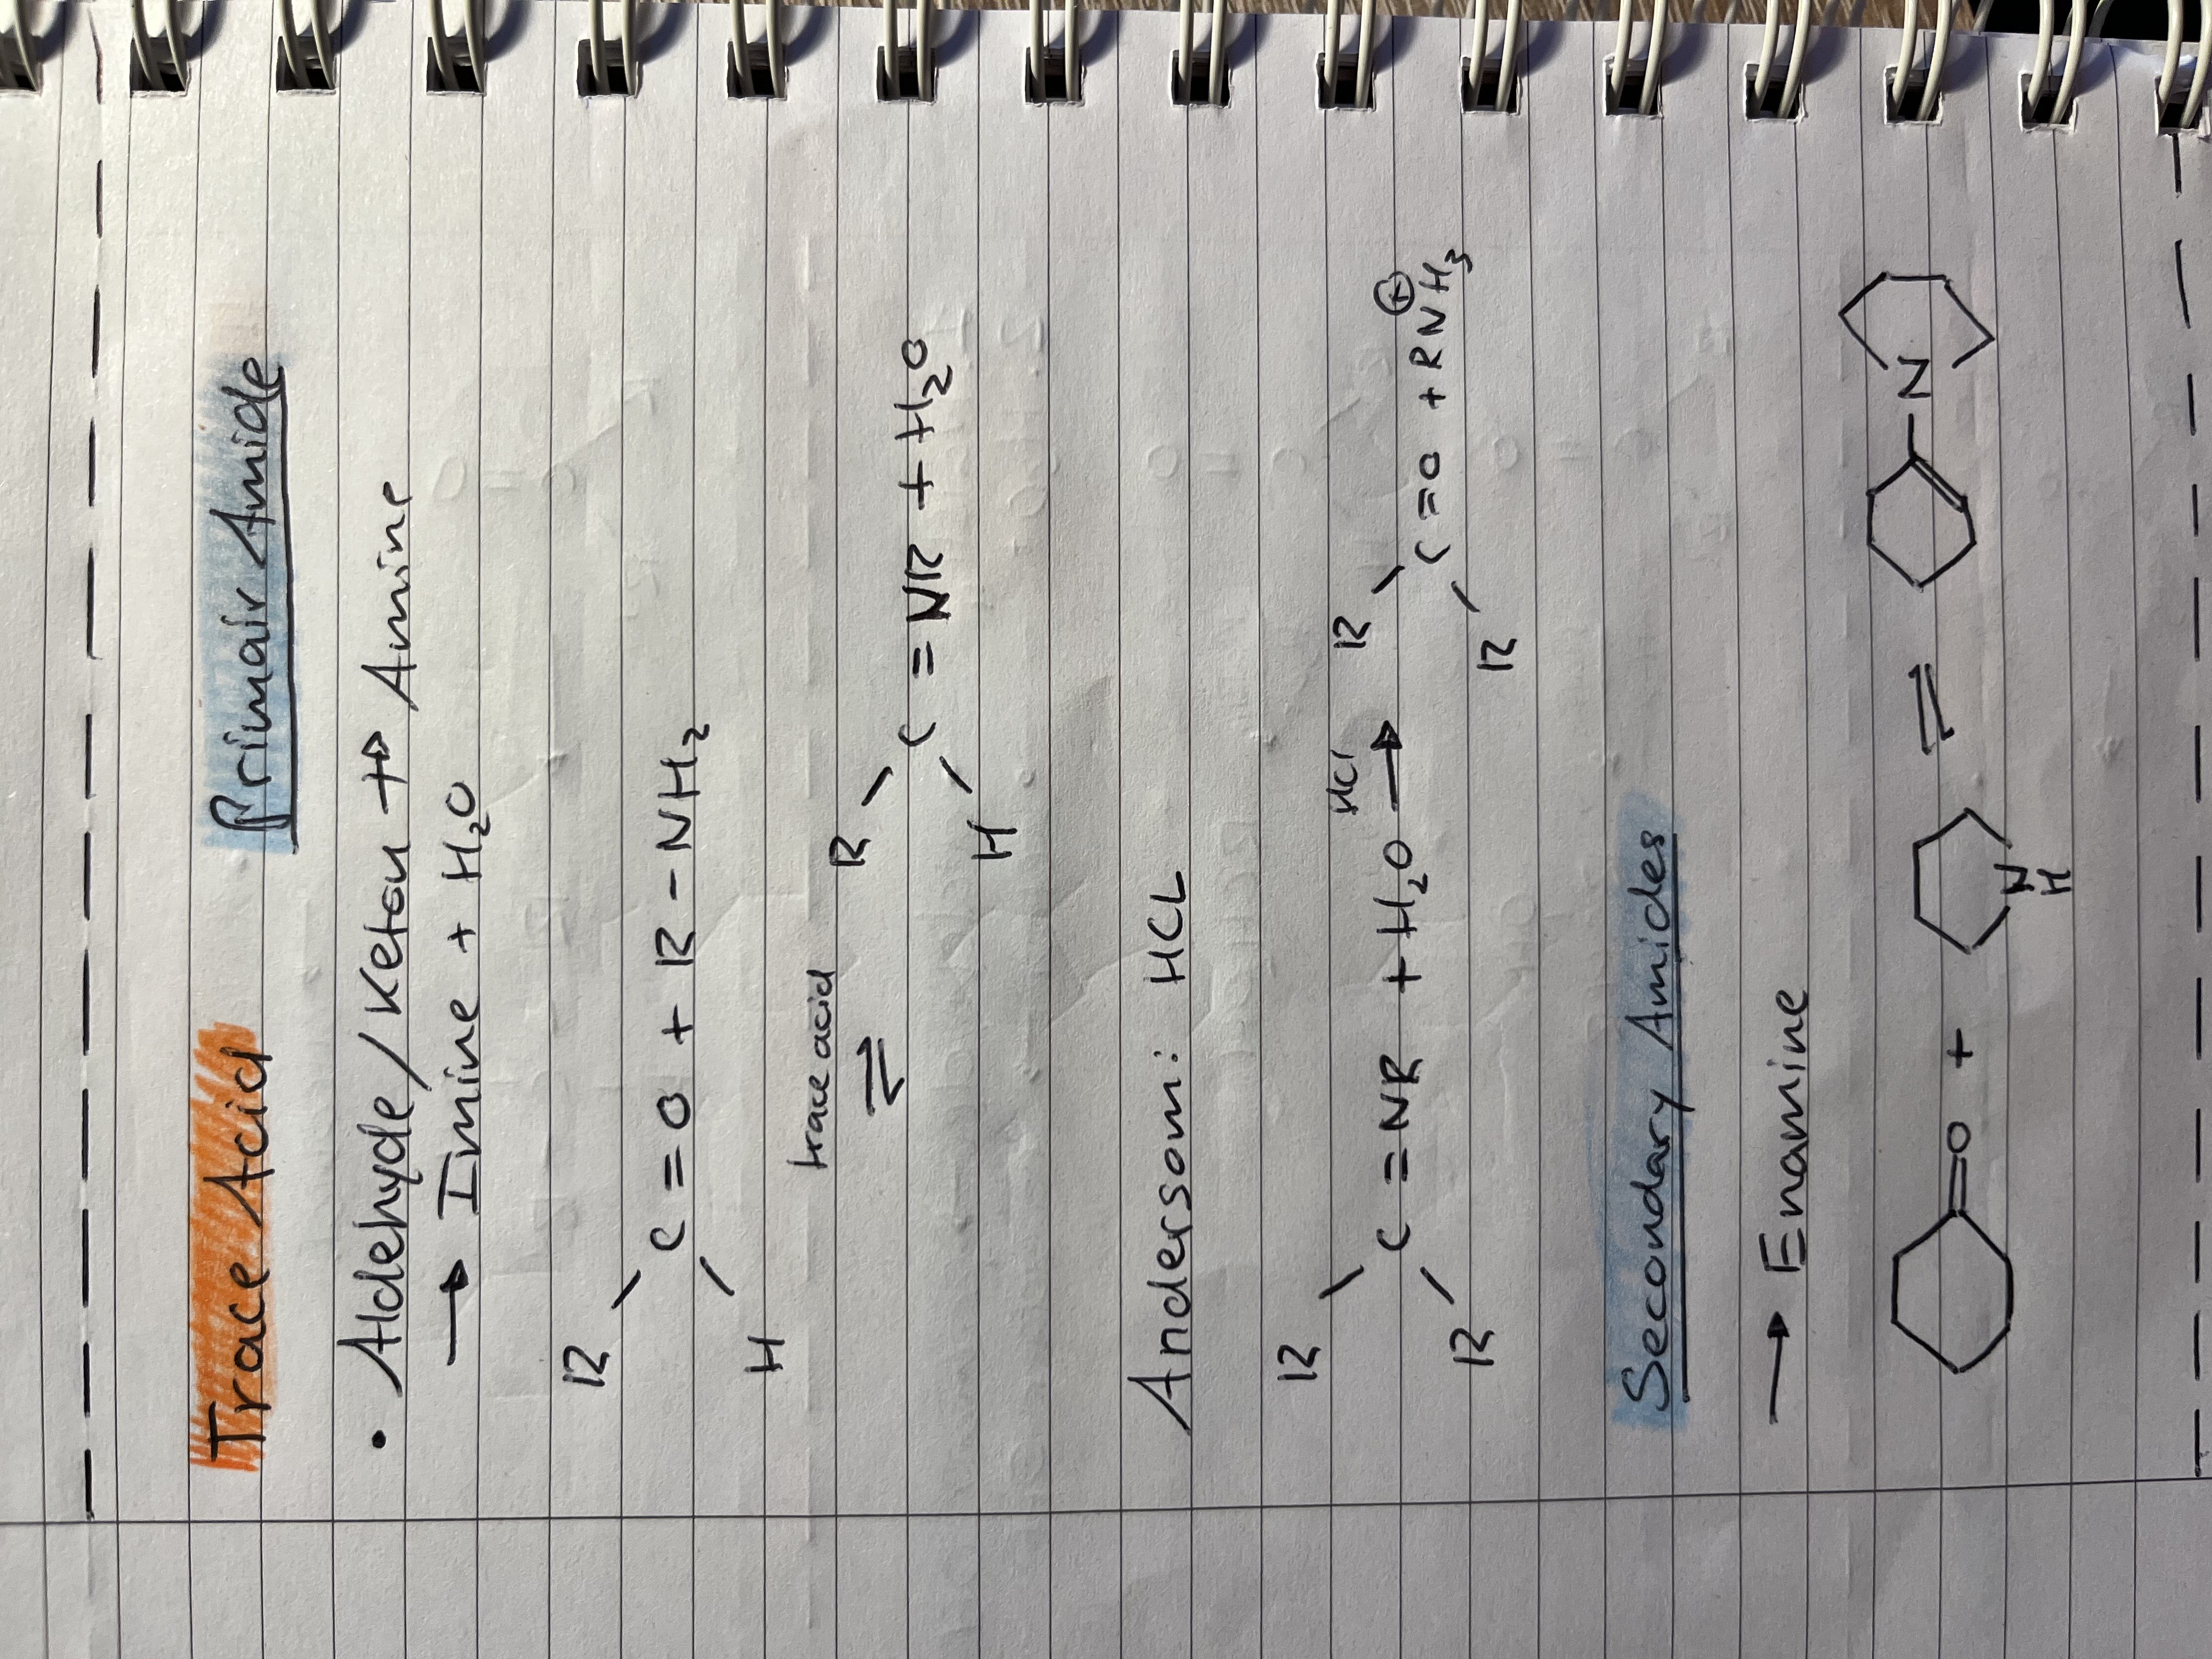 Trace Acid Primair Amide
• Aldehyde/Keton + Amine
→ Imine + H₂O
R
C=O + R-NH₂
H
trace acid
⇌
R
C=NR + H₂O
H
Andersom: HCL
R HCl R
C=NR + H₂O → C=O + RNH₃⊕
R R
Secondary Amides
→ Enamine
=O + N H ⇌ N